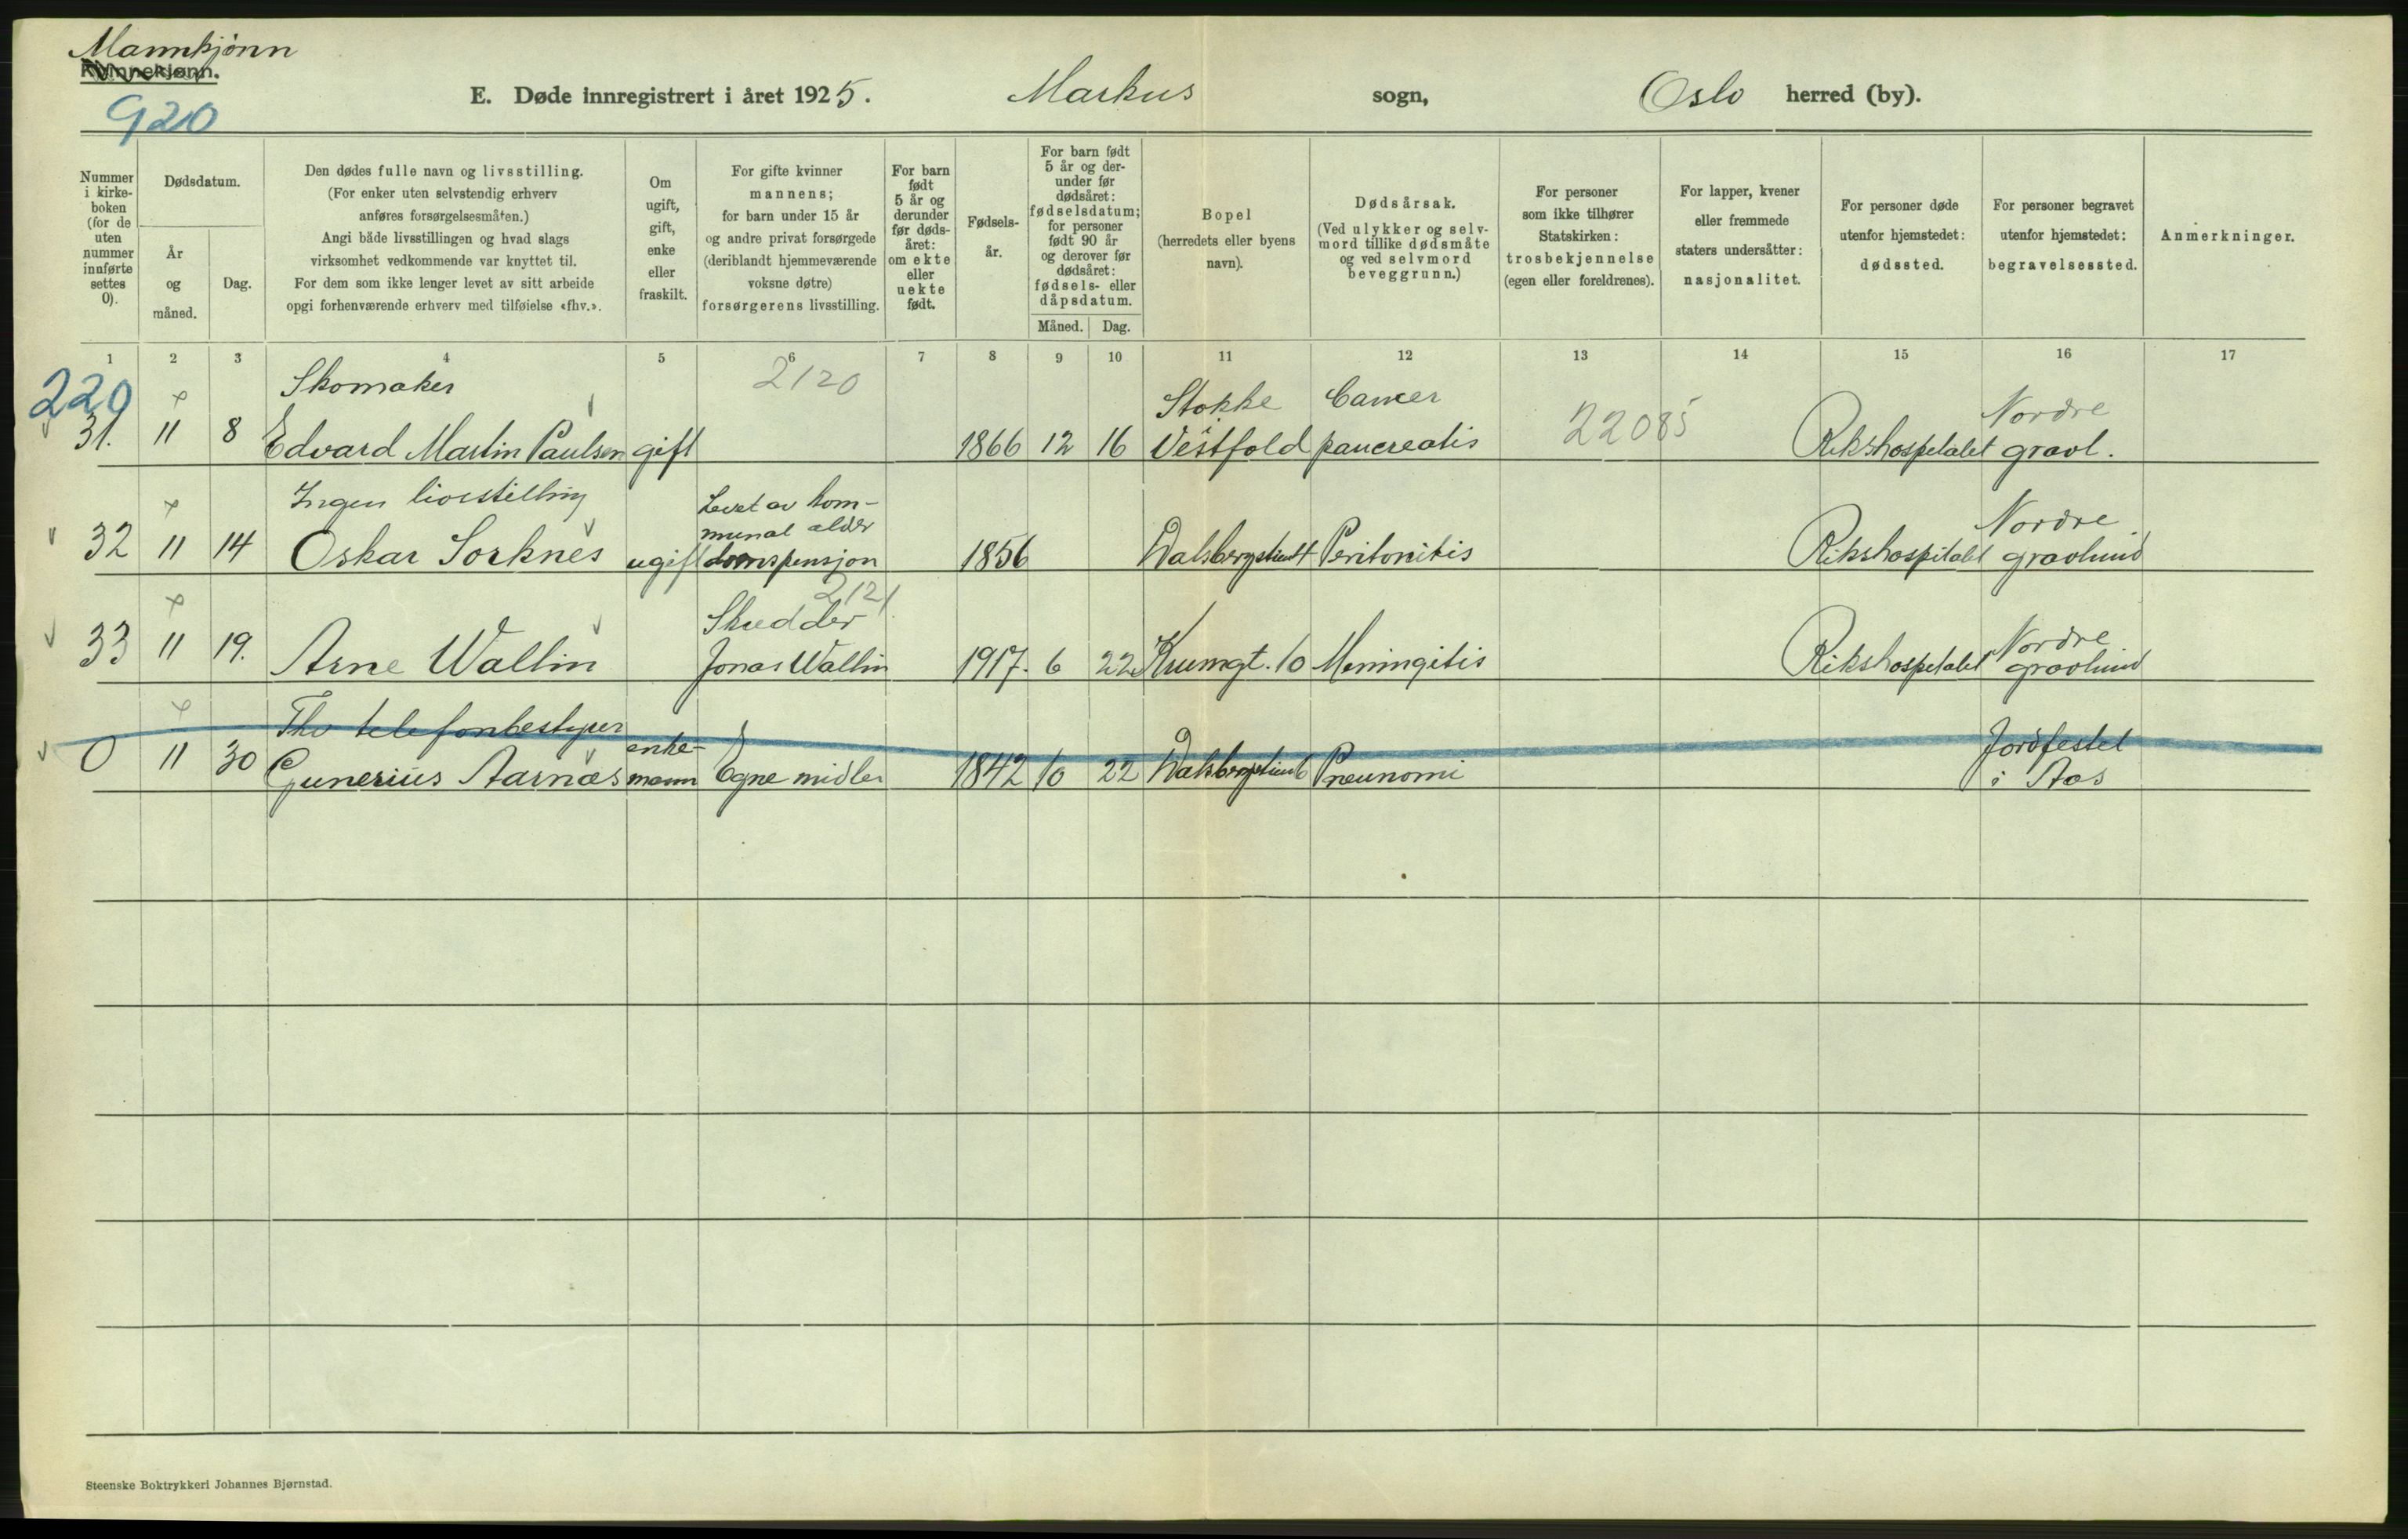 Mannkjønn
Kvinnekjønn.
920
E. Døde innregistrert i året 1925. Markus sogn, Oslo herred (by).
Nummer i kirke-boken (for de uten nummer innførte settes 0).
Dødsdatum.
År og måned.
Dag.
Den dødes fulle navn og livsstilling.
(For enker uten selvstendig erhverv
anføres forsørgelsesmåten.)
Angi både livsstillingen og hvad slags
virksomhet vedkommende var knyttet til.
For dem som ikke lenger levet av sitt arbeide
opgi forhenværende erhverv med tilføielse «fhv.».
Om
ugift,
gift,
enke
eller
fraskilt.
For gifte kvinner
mannens;
for barn under 15 år
og andre privat forsørgede
(deriblandt hjemmeværende
voksne døtre)
forsørgerens livsstilling.
For barn
født
5 år og
derunder
før døds-
året:
om ekte
eller
uekte
født.
Fødsels-
år.
For barn født
5 år og der-
under før
dødsåret:
fødselsdatum;
for personer
født 90 år
og derover før
dødsåret:
fødsels- eller
dåpsdatum.
Måned. Dag.
Bopel
(herredets eller byens
navn).
Dødsårsak.
(Ved ulykker og selv-
mord tillike dødsmåte
og ved selvmord
beveggrunn.)
For personer
som ikke tilhører
Statskirken:
trosbekjennelse
(egen eller foreldrenes).
For lapper, kvener
eller fremmede
staters undersåtter:
nasjonalitet.
For personer døde
utenfor hjemstedet:
dødssted.
For personer begravet
utenfor hjemstedet:
begravelsessted.
Anmerkninger.
1 2 3 4 5 6 7 8 9 10 11 12 13 14 15 16 17
220 Skomaker 2120 Stokke Cancer 22085 Nordre
31. 11 8 Edvard Martin Paulsen gift 1866 12 16 Vestfold pancreatis Rikshospitalet gravl.
Ingen livsstilling Levet av kom-
munal alder Nordre
32 11 14 Oskar Sorknes ugift domspensjon 1856 Peritonitis Rikshospitalet gravlund
2121
Skredder Nordre
33 11 19. Arne Wallin Jonas Wallin 1917. 6 22 Krumgt. 10 Meningitis Rikshospitalet gravlund
Fhv telefonbestyrer enke- Jordfestet
0 11 30 Gunerius Aarnæs mann Egne midler 1842 10 22 Pneunomi i Aas
Steenske Boktrykkeri Johannes Bjørnstad.